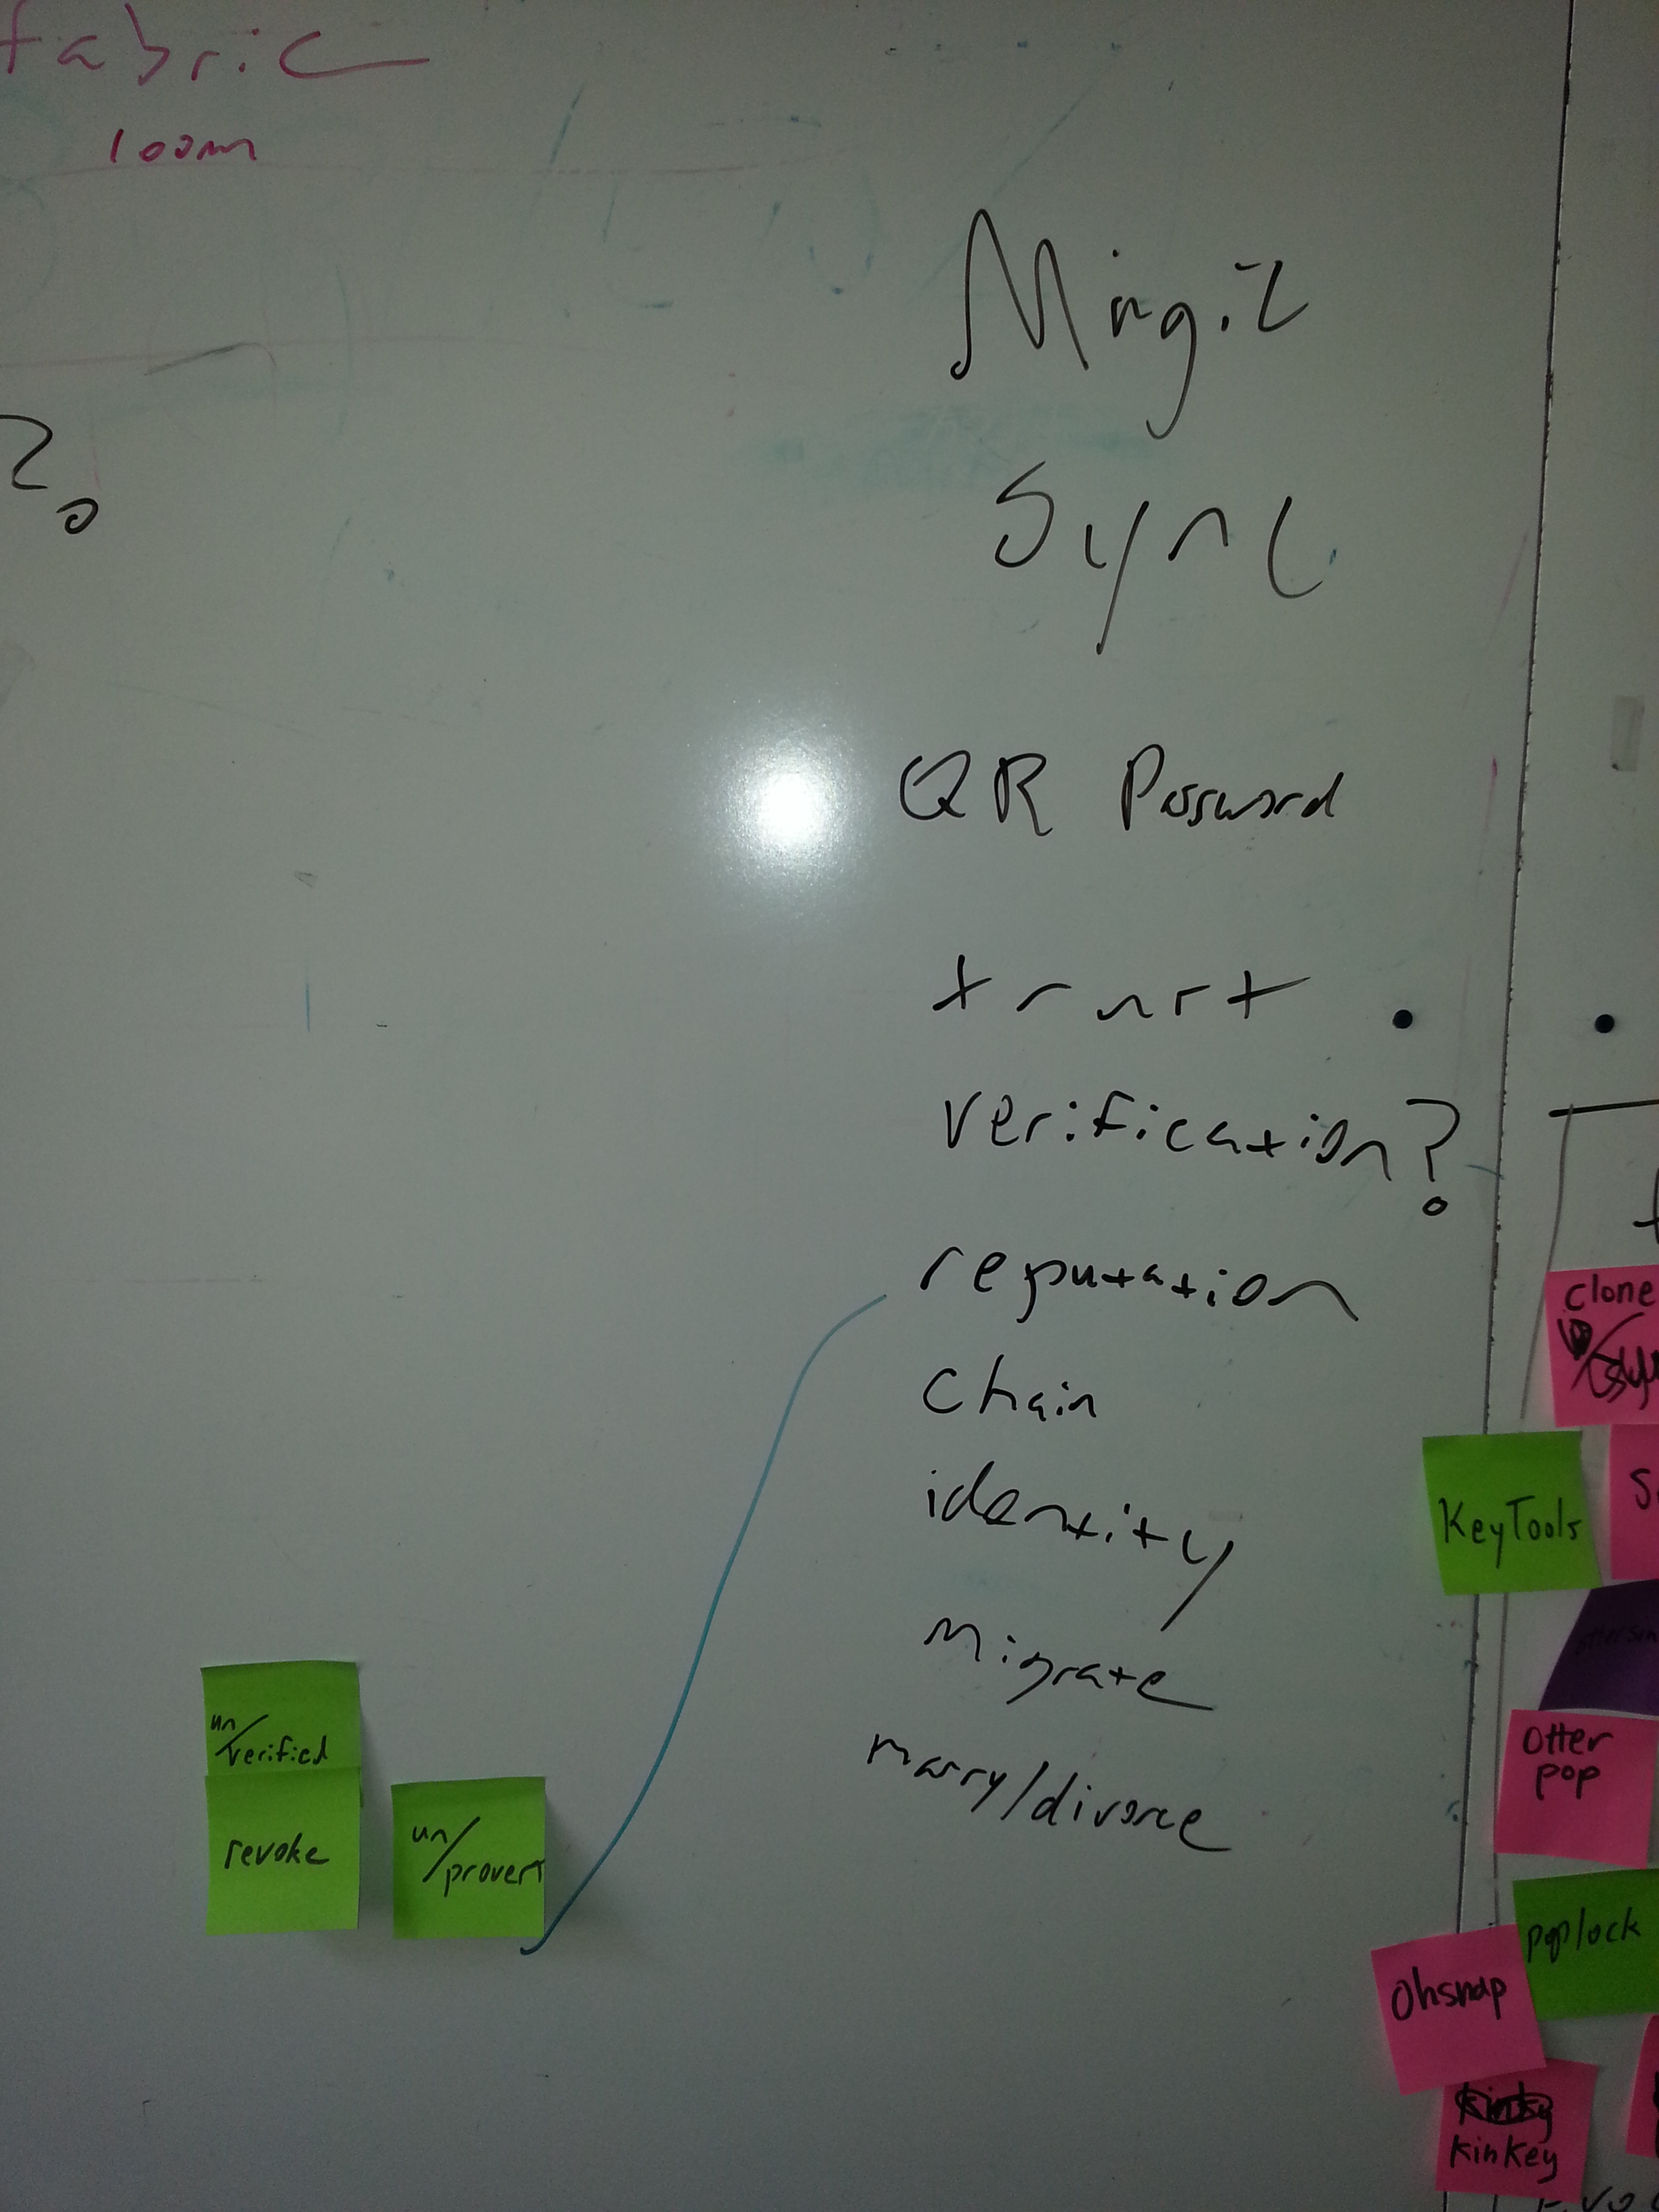 fabric
loom
Sync
QR Password
trust
verification?
reputation
chain
identity
migrate
marry/divorce
un/verified
revoke
un/proven
clone
KeyTools
Otter
pop
poplock
Ohsnap
kinky
kinkey